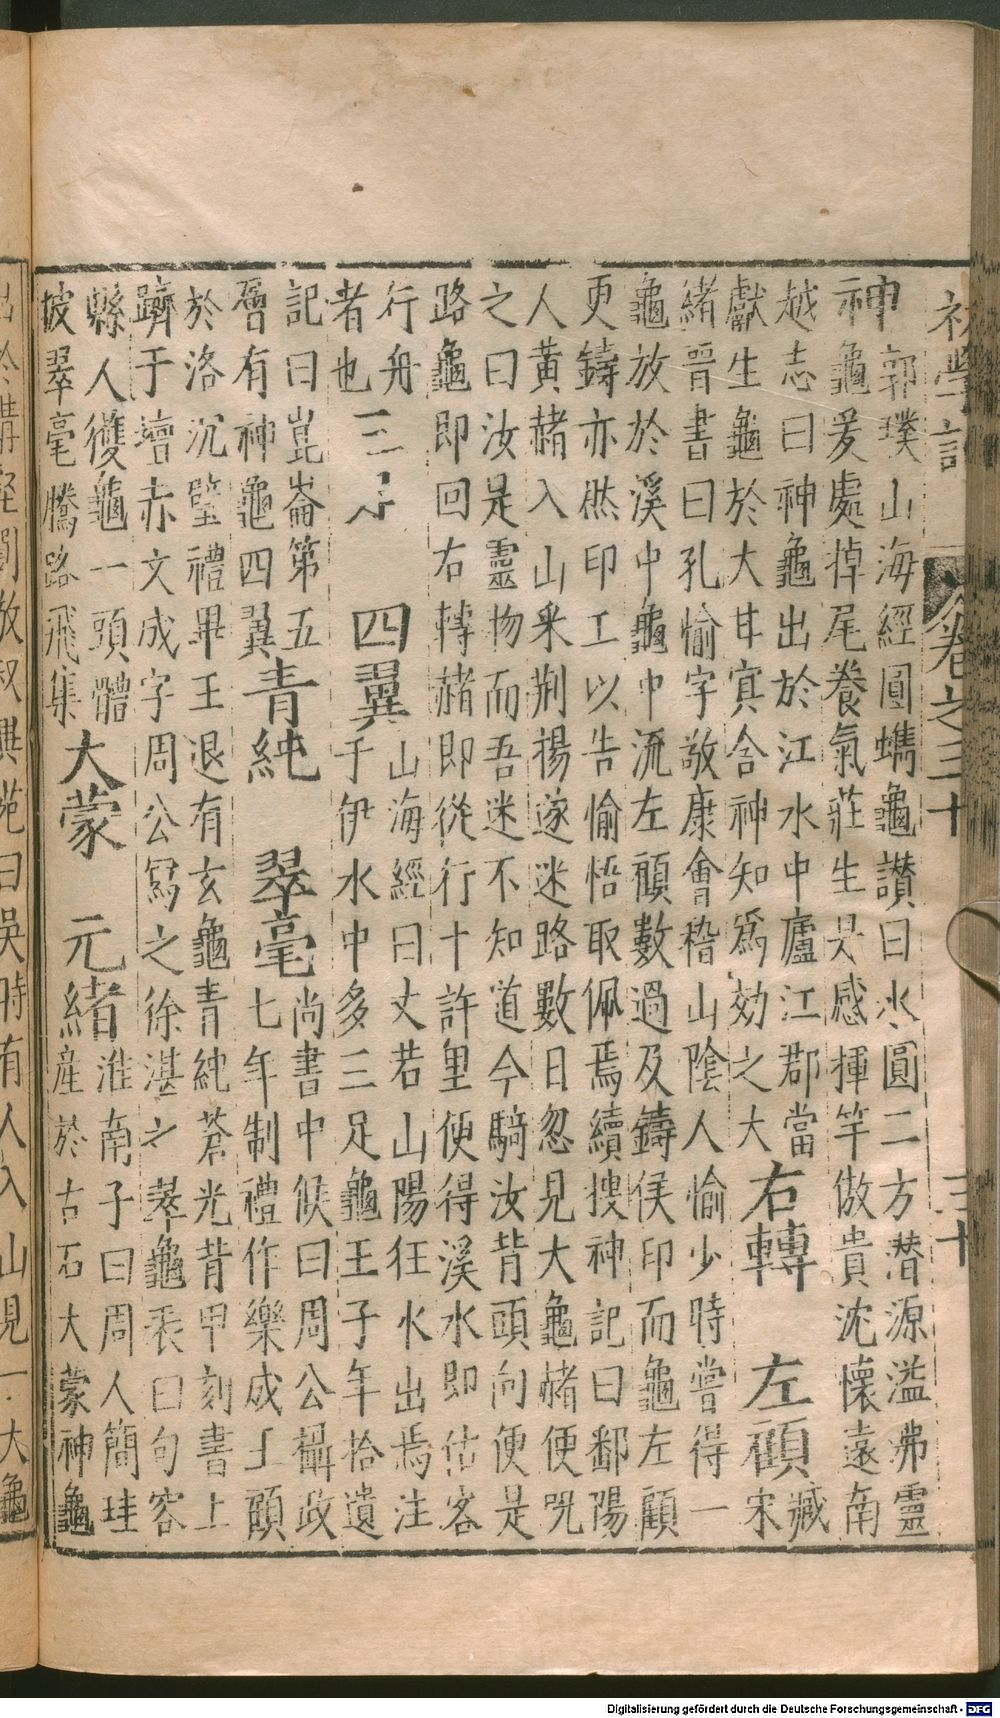 初學記 卷之三十 三十
神郭璞山海經圓蠵龜讚曰水圓二方潛源溢弗靈
神龜爰處掉尾養氣莊生是感揮竿傲貴沈懷遠南
越志曰神龜出於江水中廬江郡當
獻生龜於大甘寘舍神知爲効之大
右轉 左顧
臧
宋
緒晉書曰孔愉字敬康會稽山陰人愉少時嘗得一
龜放於溪中龜中流左顧數過及鑄侯印而龜左顧
更鑄亦然印工以告愉悟取佩焉續搜神記曰鄱陽
人黃赭入山采荆揚遂迷路數日忽見大龜赭便咒
之曰汝是靈物而吾迷不知道今騎汝背頭向便是
路龜即回右轉赭即從行十許里便得溪水即估客
行舟
者也
三足 四翼
山海經曰丈若山陽狂水出焉注
于伊水中多三足龜王子年拾遺
記曰崑崙第五
層有神龜四翼
青純 翠毫
尚書中候曰周公攝政
七年制禮作樂成王顧
於洛沉璧禮畢王退有玄龜青純蒼光背甲刻書上
躋于壇赤文成字周公寫之徐湛之萃龜表曰句容
縣人獲龜一頭體
披翠毫騰路飛集
大蒙 元緒
淮南子曰周人簡珪
產於古石大蒙神龜
出於溝壑劉敬叔異苑曰吳時有人入山見一大龜
Digitalisierung gefördert durch die Deutsche Forschungsgemeinschaft - DFG